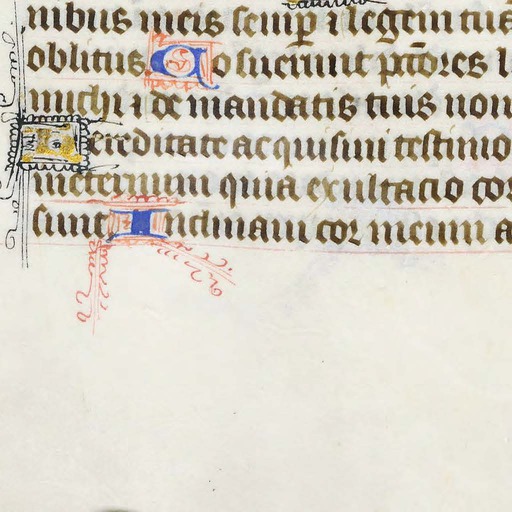 nibus meis semp et legem tua
oblitus Posuerunt pctores l
michi et de mandatis tuis non
Hereditate acquisiui testimo
ineternum quia exultatio cor
sunt Inclinaui cor meum a